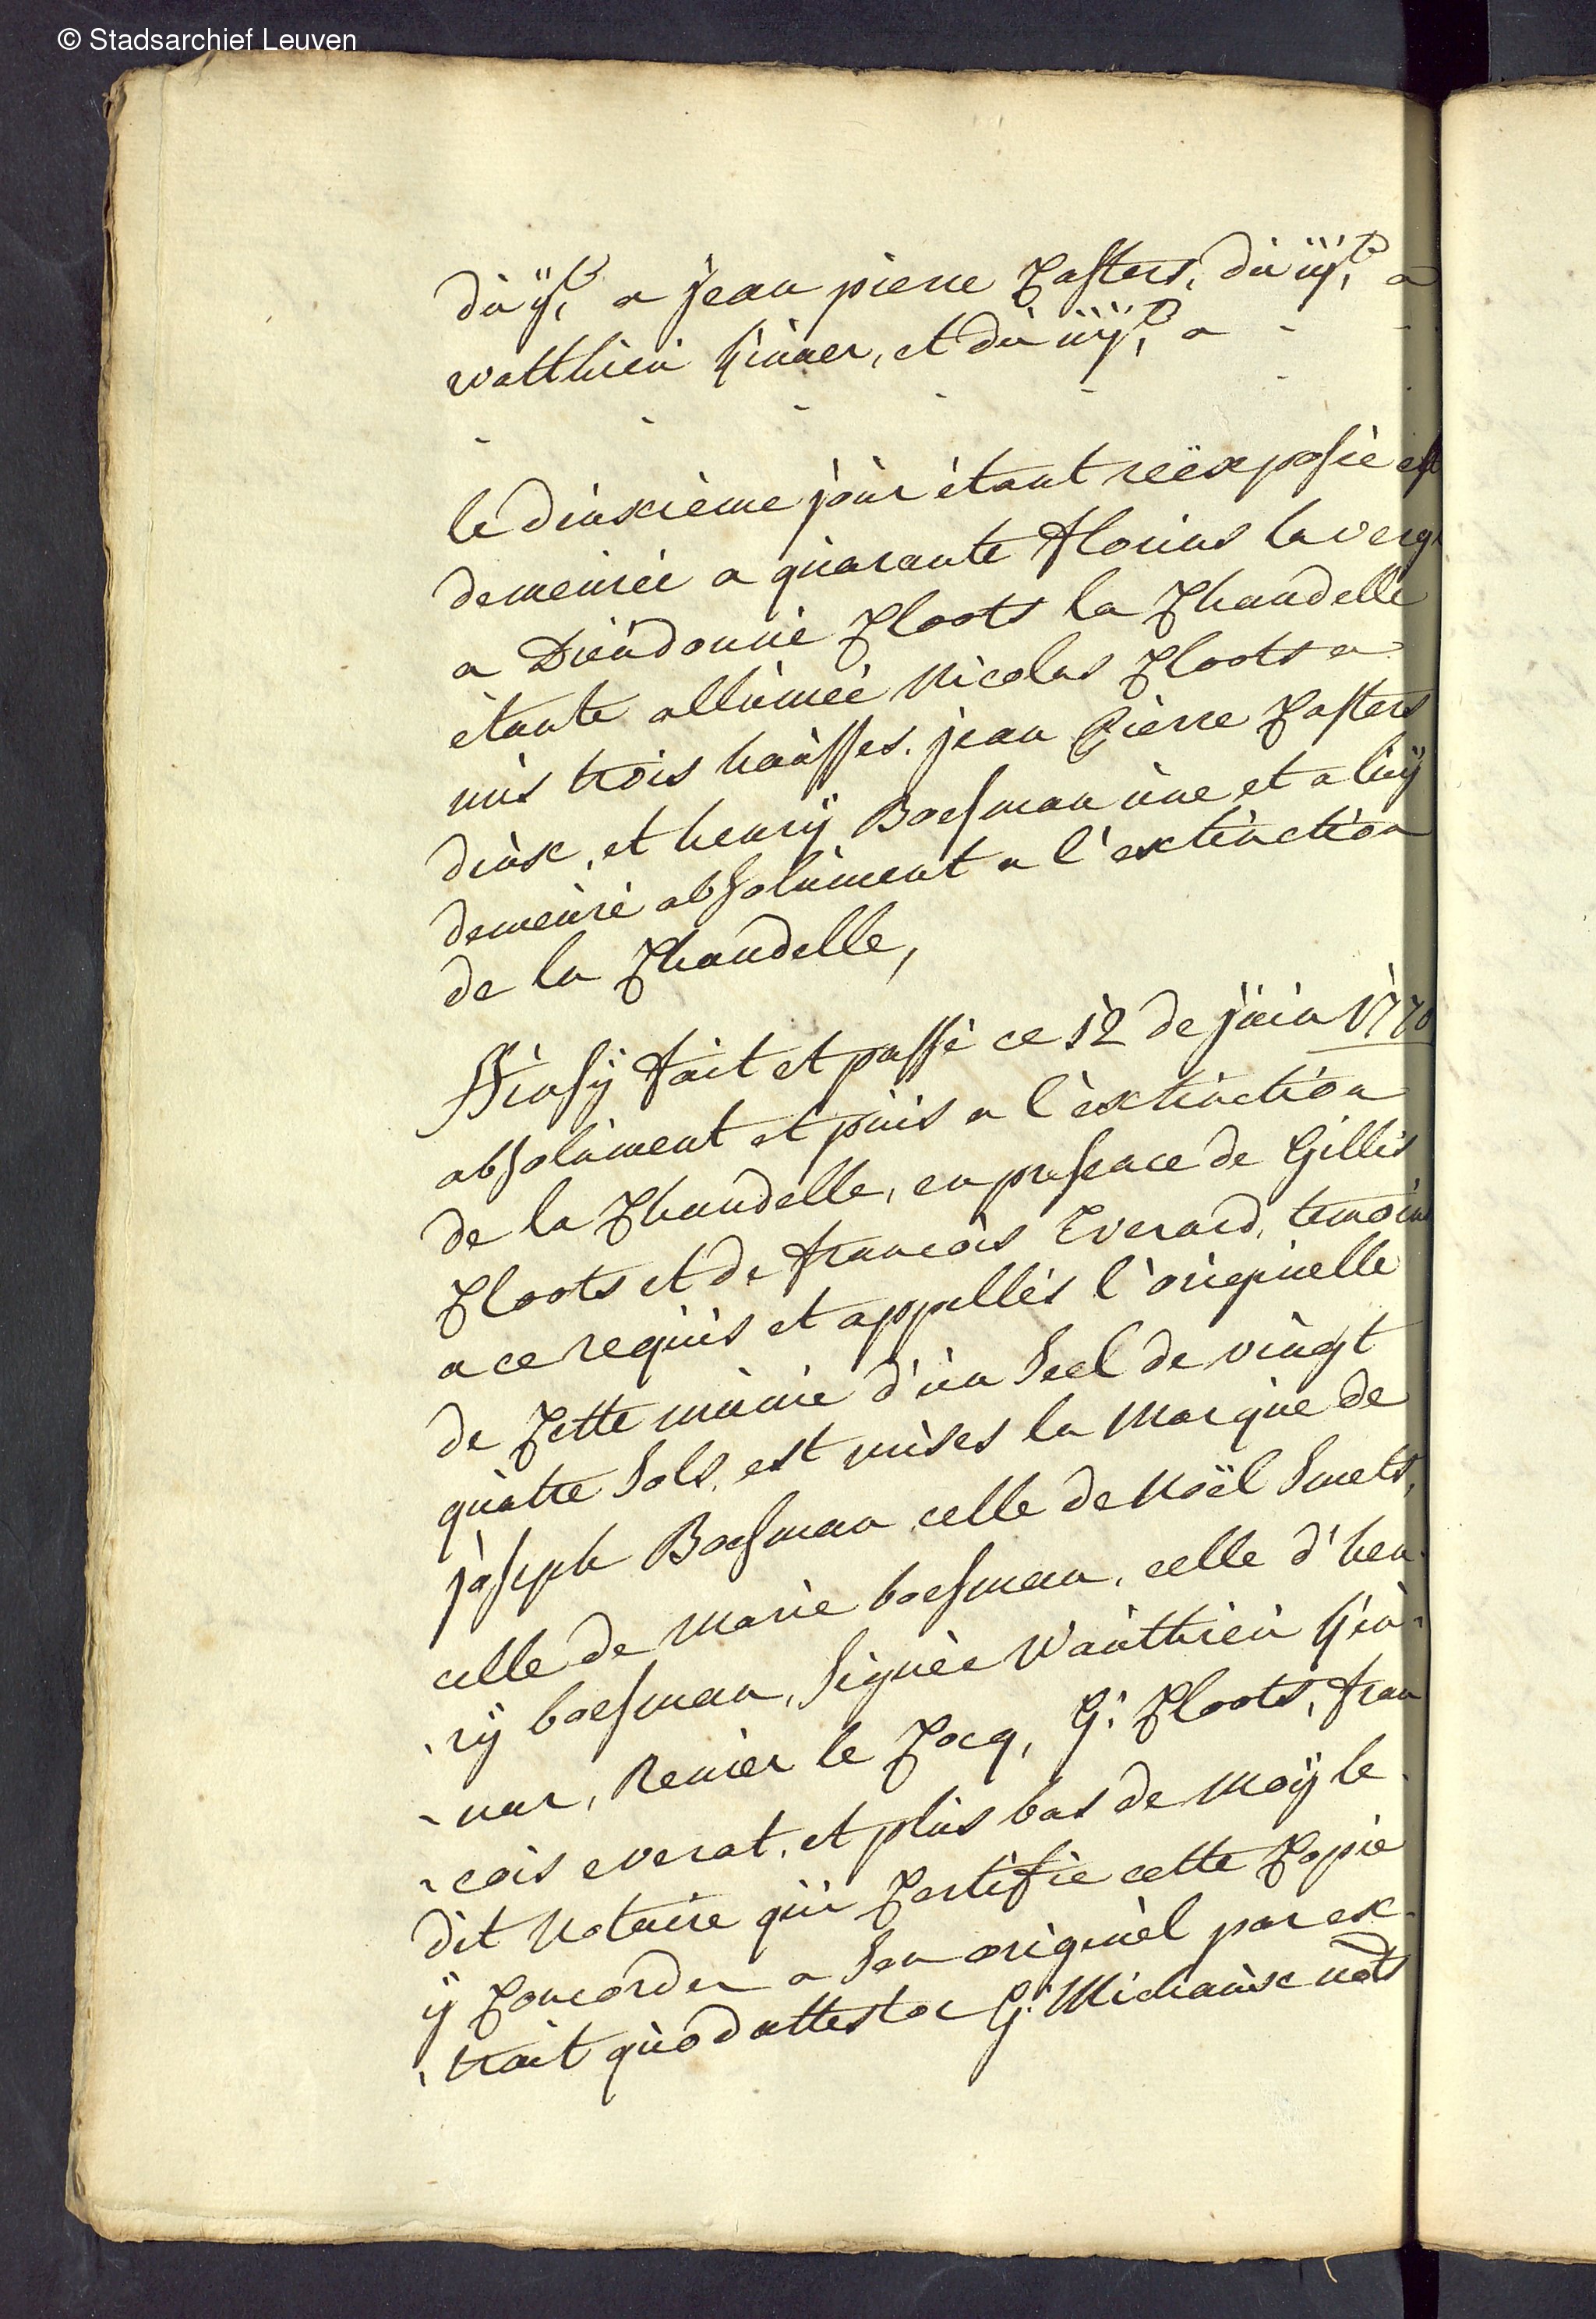 © Stadsarchief Leuven
dù ij, a jean pierre Casters, dù iij, a
watthieú Ginner, et dù iiij, a - -
- - - - - -
le deúxieme joùr étant reëxposée est
demeurée a quarante florins la verg
a Dieúdonné Cloots la Chandelle
étante allùmeé Nicolas Cloots a
mis trois haùsses. jean Pierre Casters
deùx, et henrij Boesman ùne et a luij
demeùré absolùment a l'extinction
de la Chandelle,
Ainsij fait et passé ce 12 de jùin 1770
absolùment et pùis a l'extinction
de la Chandelle, en presence de Gillis
Cloots et de francois Everard, temoins
a ce reqùis et appellés l'originelle
de Cette mùnie d'ùn Seel de vingt
qùatre Sols, est mises la Marqùe de
joseph Boesman celle de Noël Smets,
celle de Marie boesman, celle d'hen-
-rij boesman, Signée Waùthieù Gin-
-ner, Renier le Cocq, G: Cloots, fran
-cois everat, et plùs bas de Moij le
dit Notaire qùi Certifie cette Copie
ij Concorder a Son originèl par ex-
-trait qùod attestor G: Michaùx nots